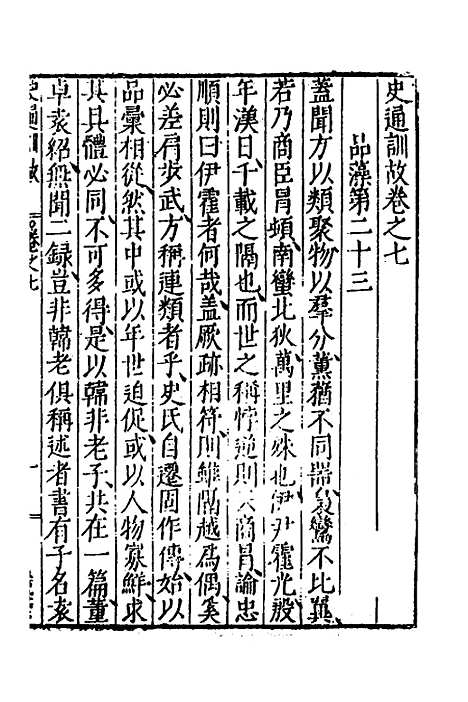 史通訓故卷之七
品藻第二十三
蓋聞方以類聚物以羣分薰蕕不同器梟鸞不比翼
若乃商臣冒頓南蠻北狄萬里之殊也伊尹霍光殷
年漢日千載之隔也而世之稱悖逆則云商冒論忠
順則曰伊霍者何哉蓋厥跡相符則雖隔越爲偶奚
必差肩步武方稱連類者乎史氏自遷固作傳始以
品彙相從然其中或以年世迫促或以人物寡鮮求
其具體必同不可多得是以韓非老子共在一篇董
卓袁紹無聞二録豈非韓老俱稱述者書有子名袁
史通訓故 卷之七 一